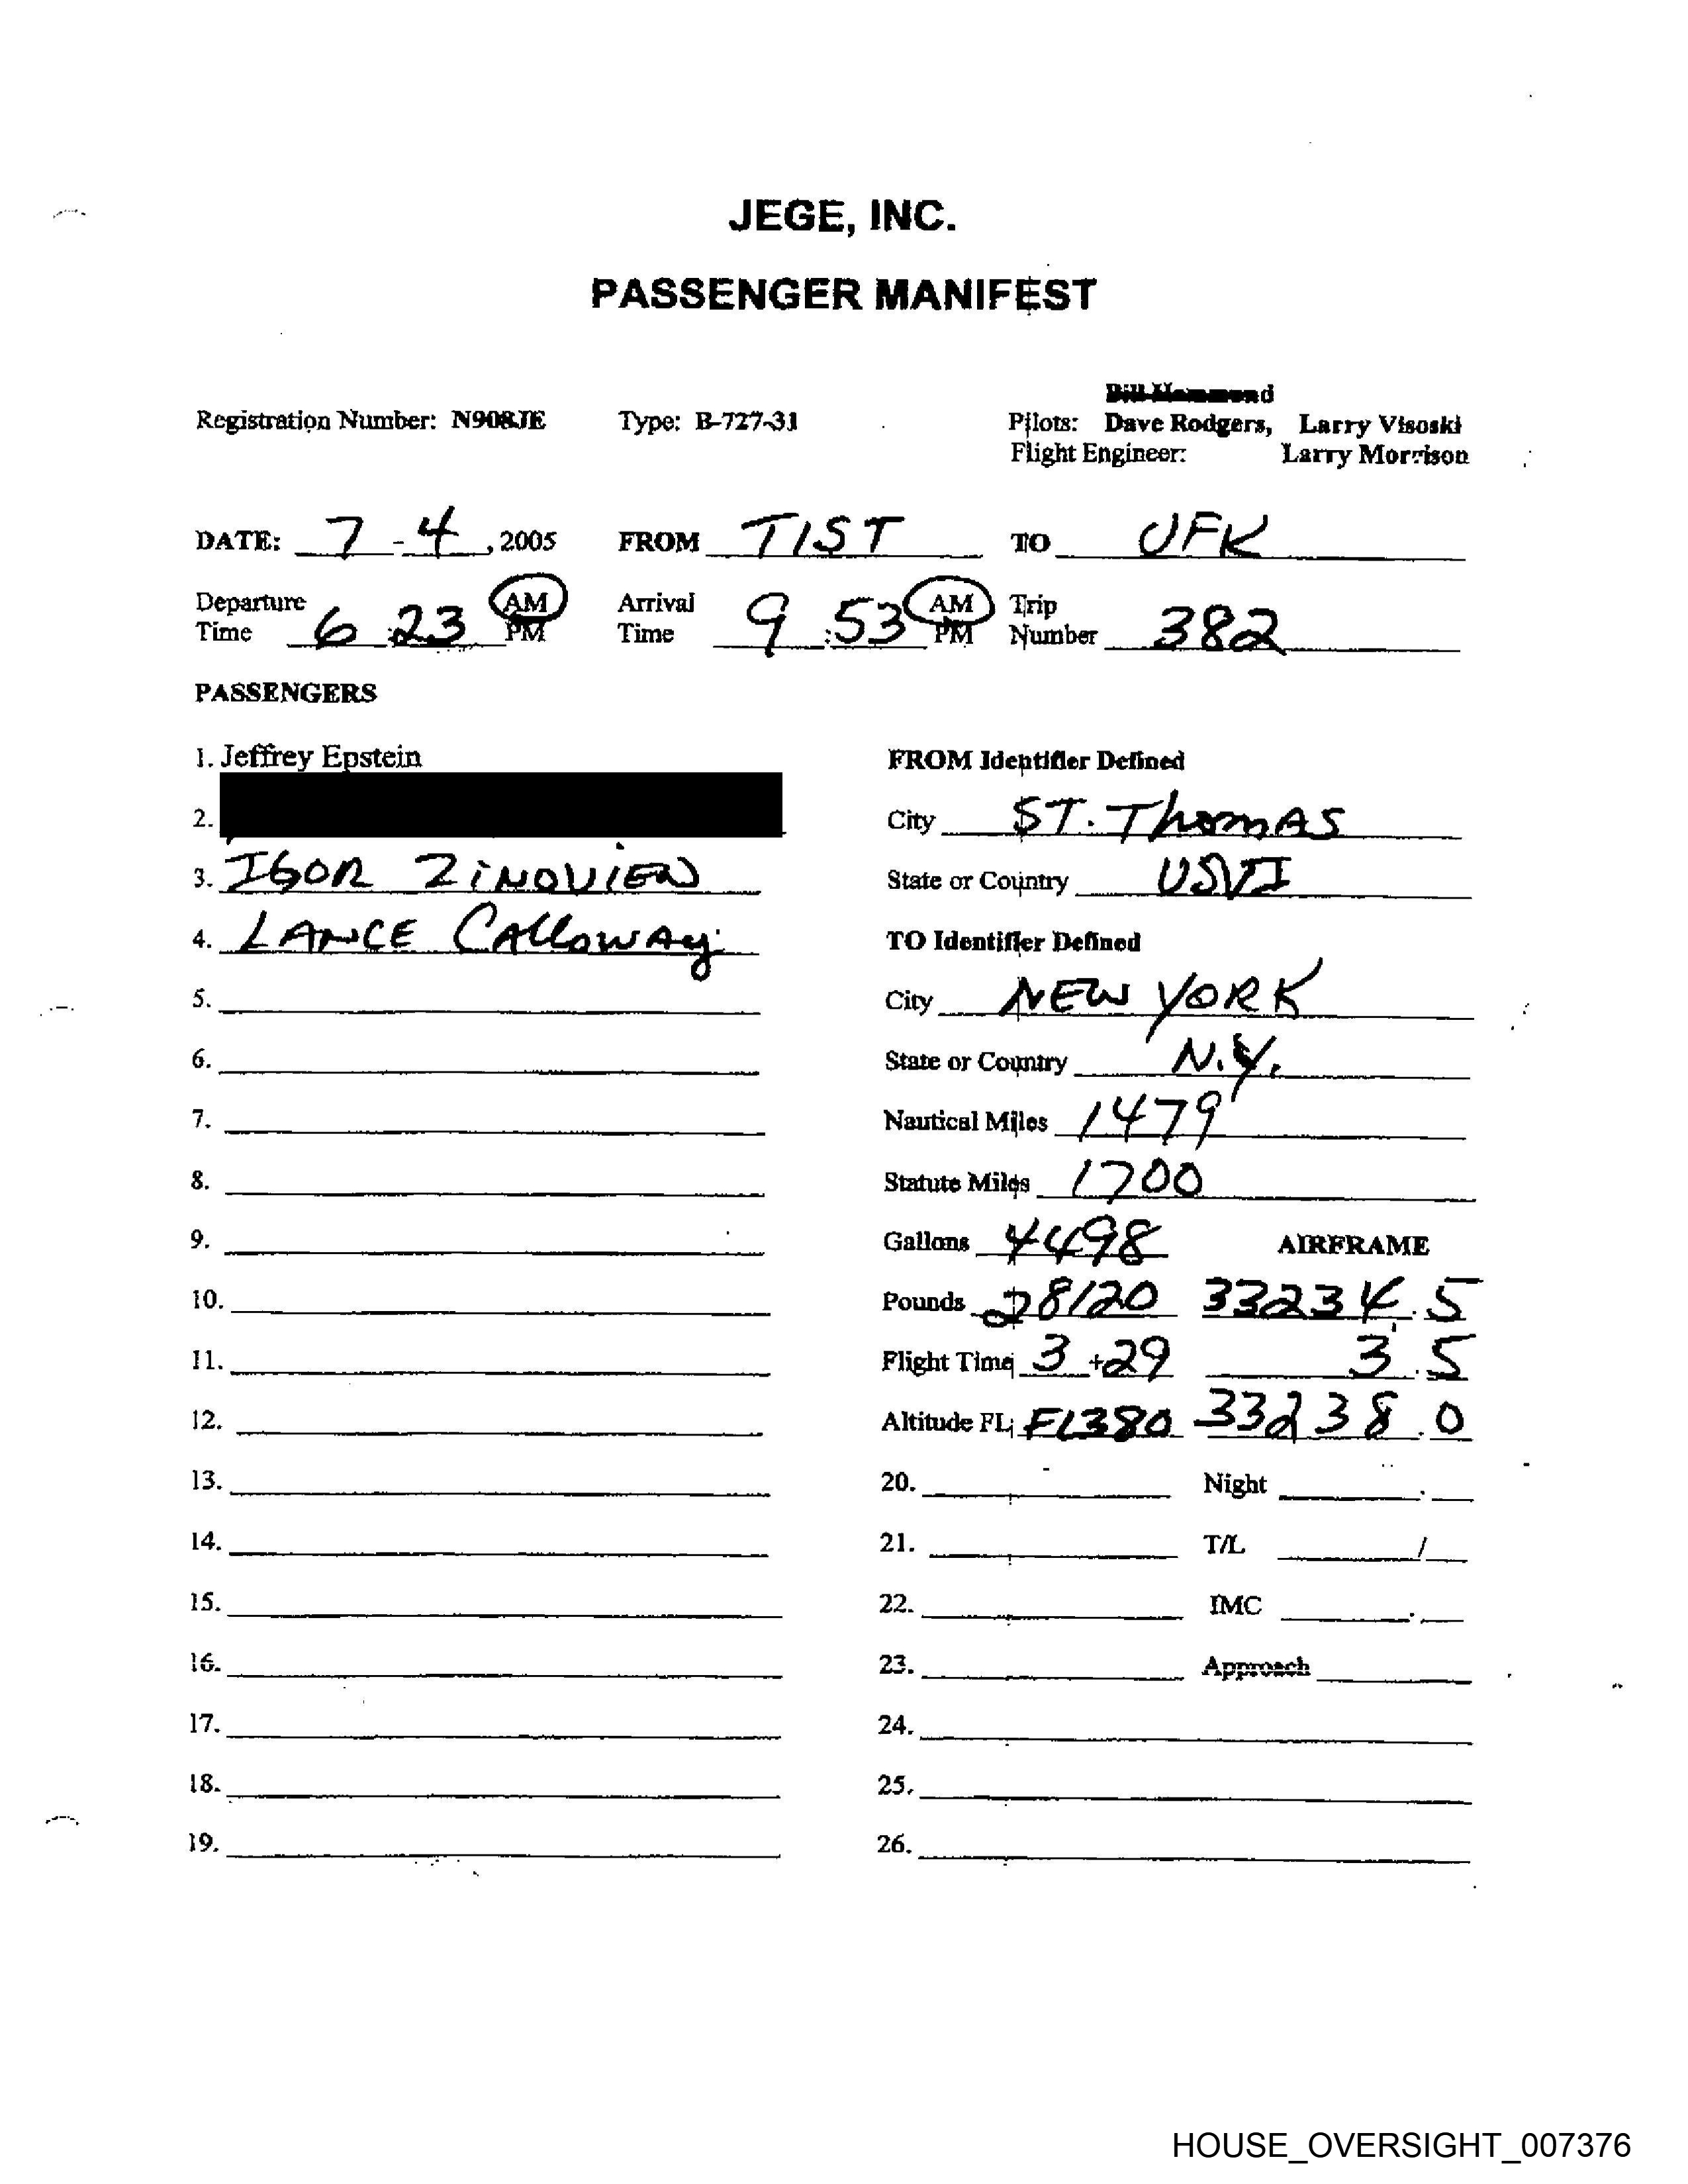 JEGE, INC.
PASSENGER MANIFEST
Registration Number: N908JE Type: B-727-31 Pilots: Dave Rodgers, Larry Visoski
Flight Engineer: Larry Morrison
DATE: 7 - 4, 2005 FROM TIST TO JFK
Departure Time 6:23 AM PM Arrival Time 9:53 AM PM Trip Number 382
PASSENGERS
1. Jeffrey Epstein
2.
3. IGOR ZINOVIEV
4. LANCE CALLOWAY
5.
6.
7.
8.
9.
10.
11.
12.
13.
14.
15.
16.
17.
18.
19.
FROM Identifier Defined
City ST. THOMAS
State or Country USVI
TO Identifier Defined
City NEW YORK
State or Country N.Y.
Nautical Miles 1479
Statute Miles 1700
Gallons 4498 AIRFRAME
Pounds 28120 33234.5
Flight Time 3 +29 3.5
Altitude FL FL380 33238.0
20. Night .
21. T/L /
22. IMC .
23. Approach
24.
25.
26.
HOUSE_OVERSIGHT_007376